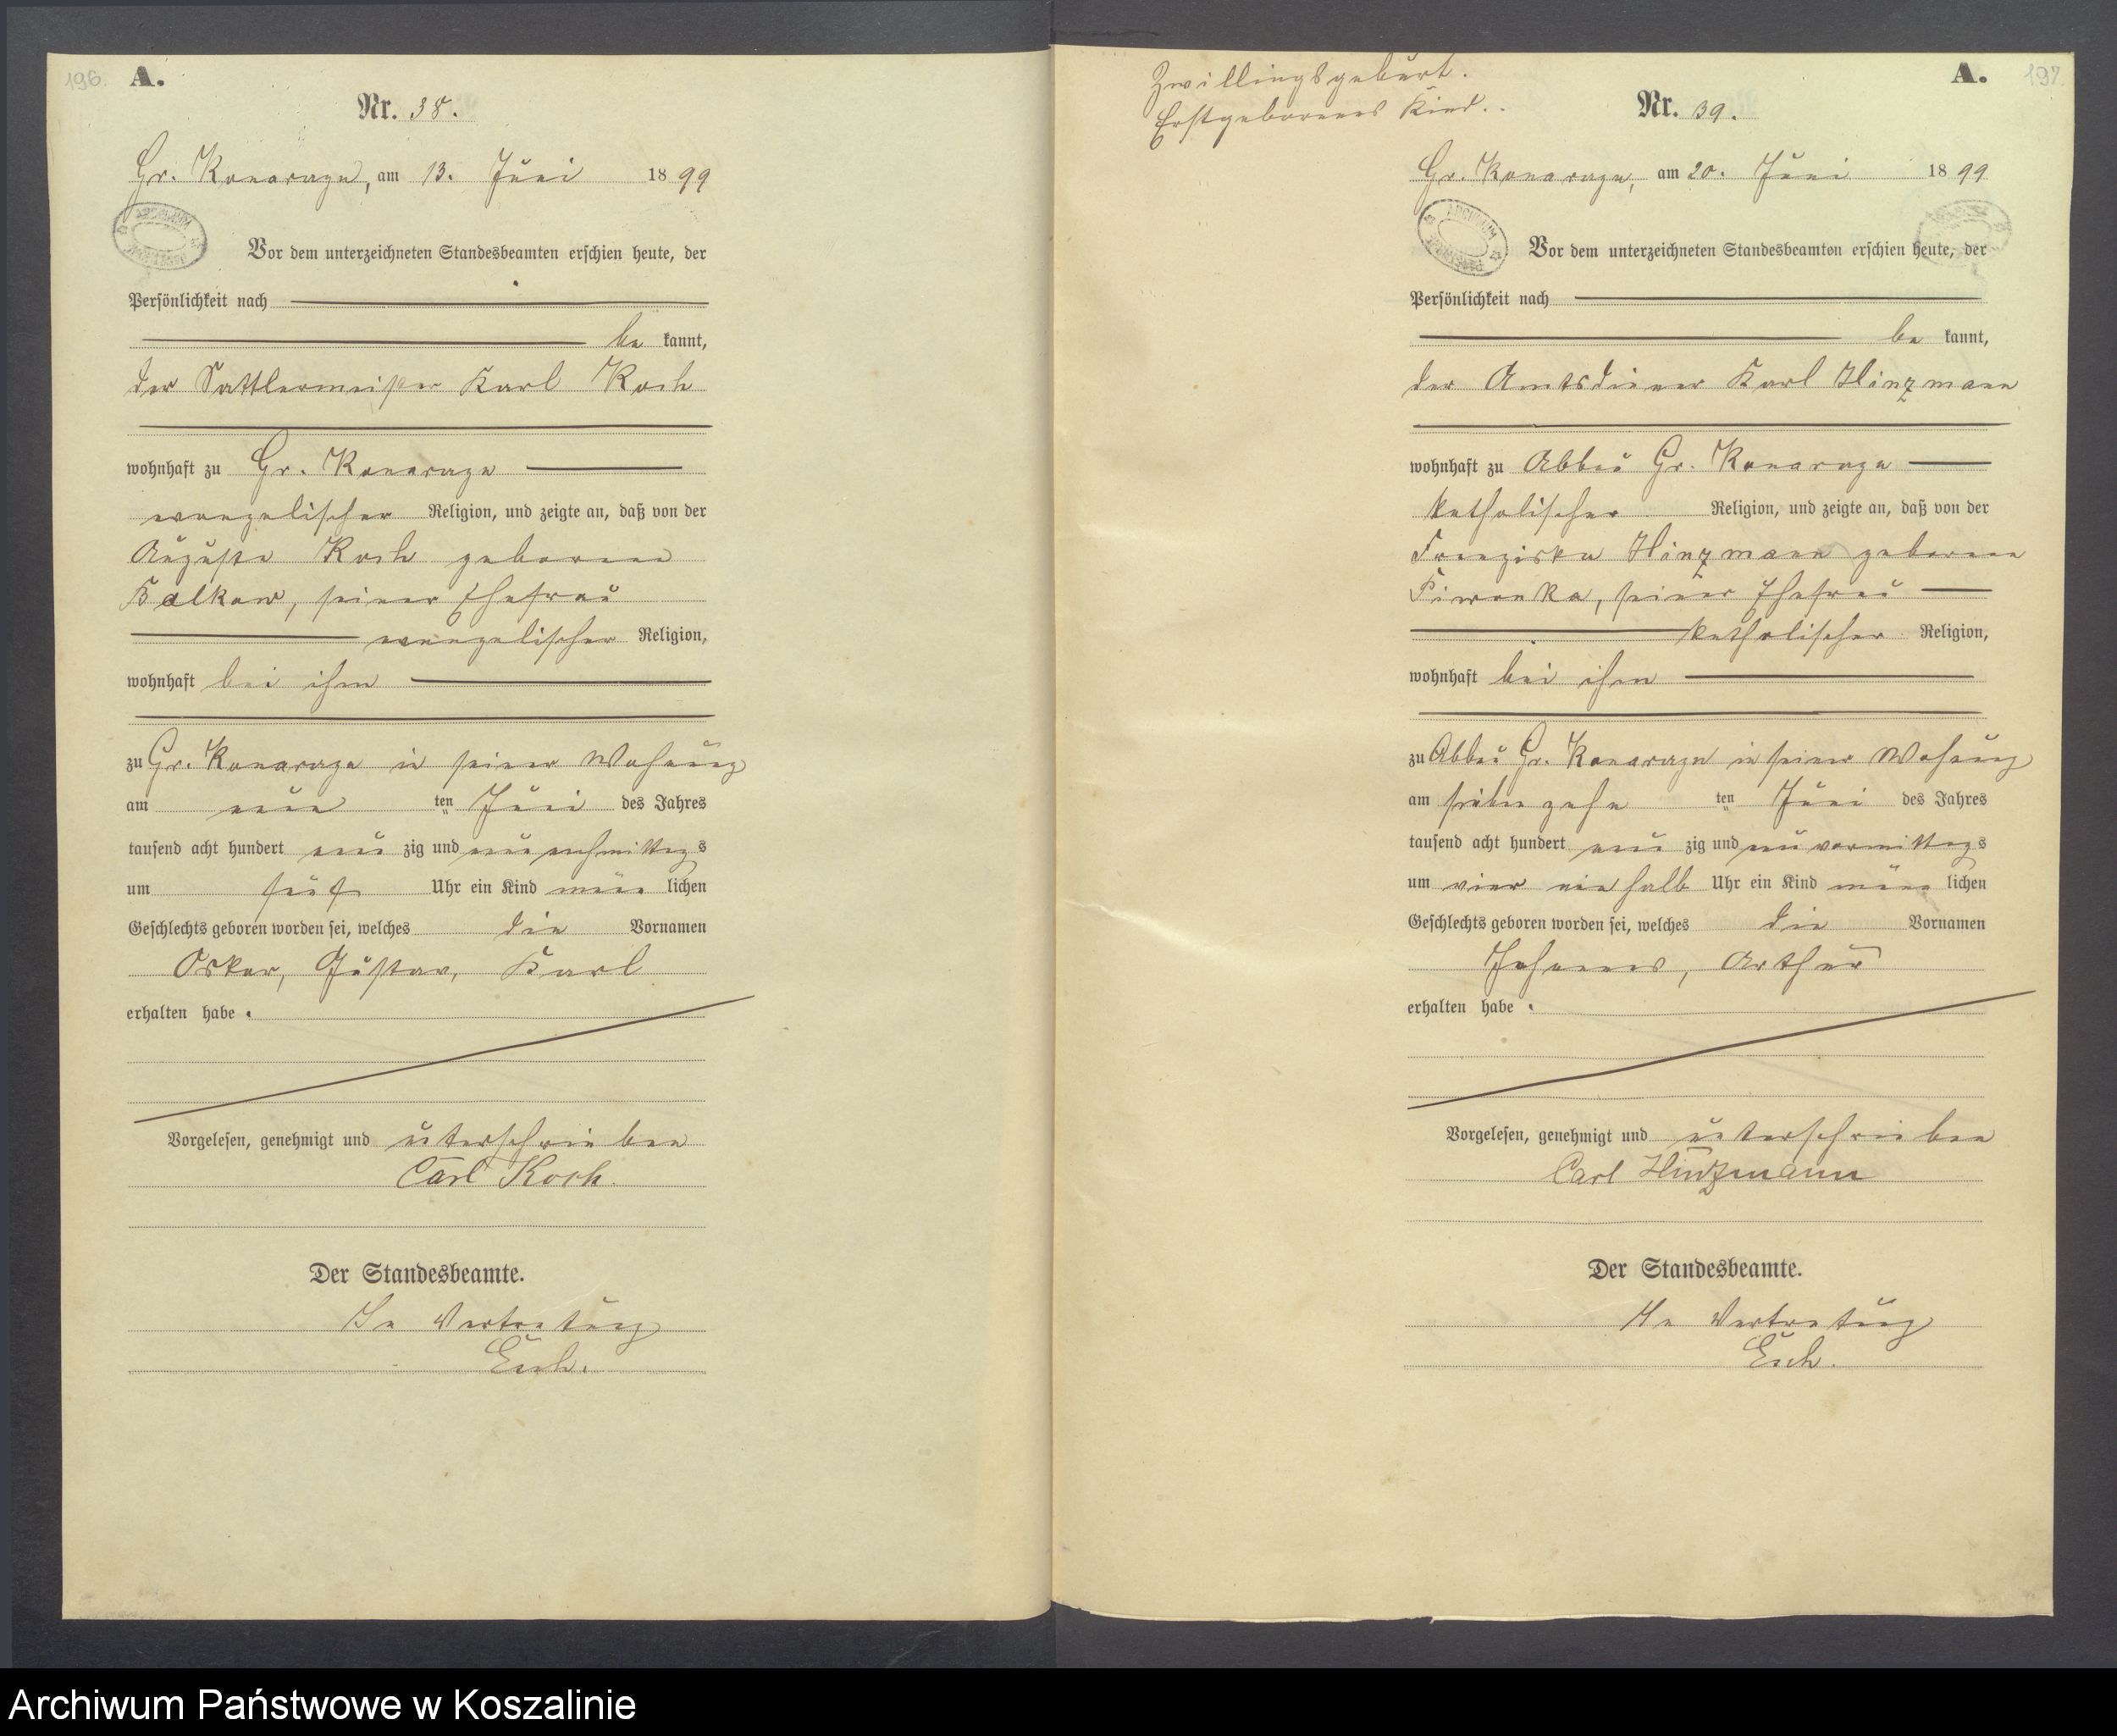 196.
A.
Nr. 38.
Gr. Konarzyn, am 13. Juni 1899
Vor dem unterzeichneten Standesbeamten erschien heute, der
Persönlichkeit nach
be kannt,
der Sattlermeister Karl Koch
wohnhaft zu Gr. Konarzyn
evangelischer Religion, und zeigte an, daß von der
Auguste Koch geborene
Balkow, seiner Ehefrau
evangelischer Religion,
wohnhaft bei ihm
zu Gr. Konarzyn in seiner Wohnung
am neun ten Juni des Jahres
tausend acht hundert neun zig und neun nachmittags
um fünf Uhr ein Kind männ lichen
Geschlechts geboren worden sei, welches die Vornamen
Oskar, Gustav, Karl
erhalten habe.
Vorgelesen, genehmigt und unterschrieben
Carl Koch.
Der Standesbeamte.
In Vertretung
Esch.
Zwillingsgeburt.
Erstgeborenes Kind.
A.
197.
Nr. 39.
Gr. Konarzyn, am 20. Juni 1899
Vor dem unterzeichneten Standesbeamten erschien heute, der
Persönlichkeit nach
be kannt,
der Amtsdiener Karl Hinzmann
wohnhaft zu Abbau Gr. Konarzyn
katholischer Religion, und zeigte an, daß von der
Franziska Hinzmann geborene
Piwonka, seiner Ehefrau
katholischer Religion,
wohnhaft bei ihm
zu Abbau Gr. Konarzyn in seiner Wohnung
am siebenzehn ten Juni des Jahres
tausend acht hundert neun zig und neun vormittags
um vier ein halb Uhr ein Kind männ lichen
Geschlechts geboren worden sei, welches die Vornamen
Johannes, Arthur
erhalten habe.
Vorgelesen, genehmigt und unterschrieben
Carl Hinzmann
Der Standesbeamte.
In Vertretung
Esch.
Archiwum Państwowe w Koszalinie